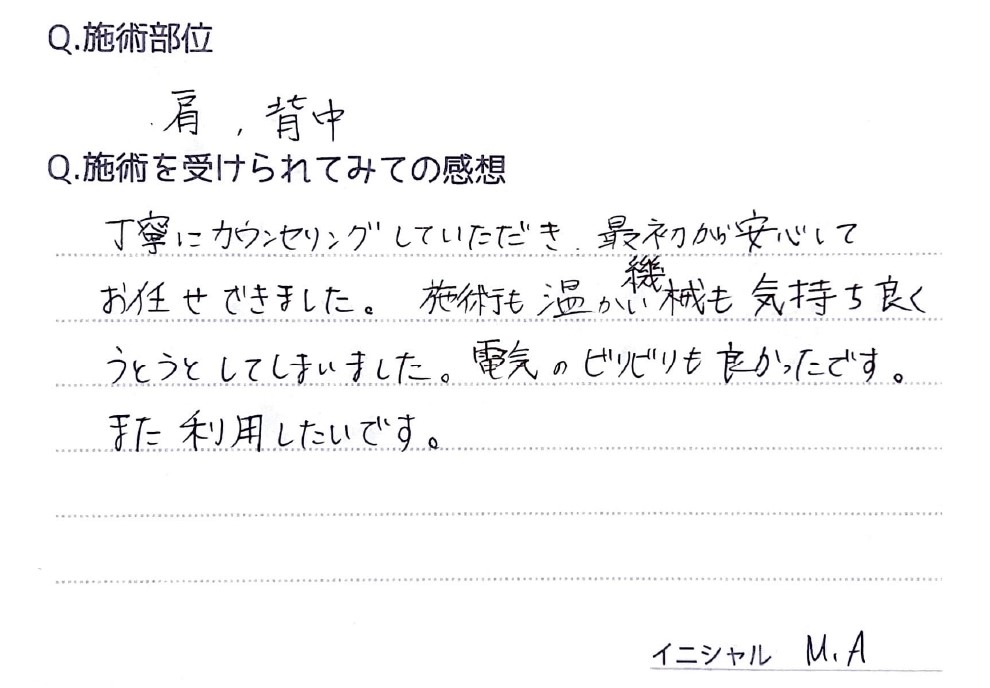 Q.施術部位
肩、背中
Q.施術を受けられてみての感想
丁寧にカウンセリングしていただき、最初から安心して
お任せできました。 施術も温かい機械も気持ち良く
うとうとしてしまいました。電気のビリビリも良かったです。
また利用したいです。
イニシャル M.A